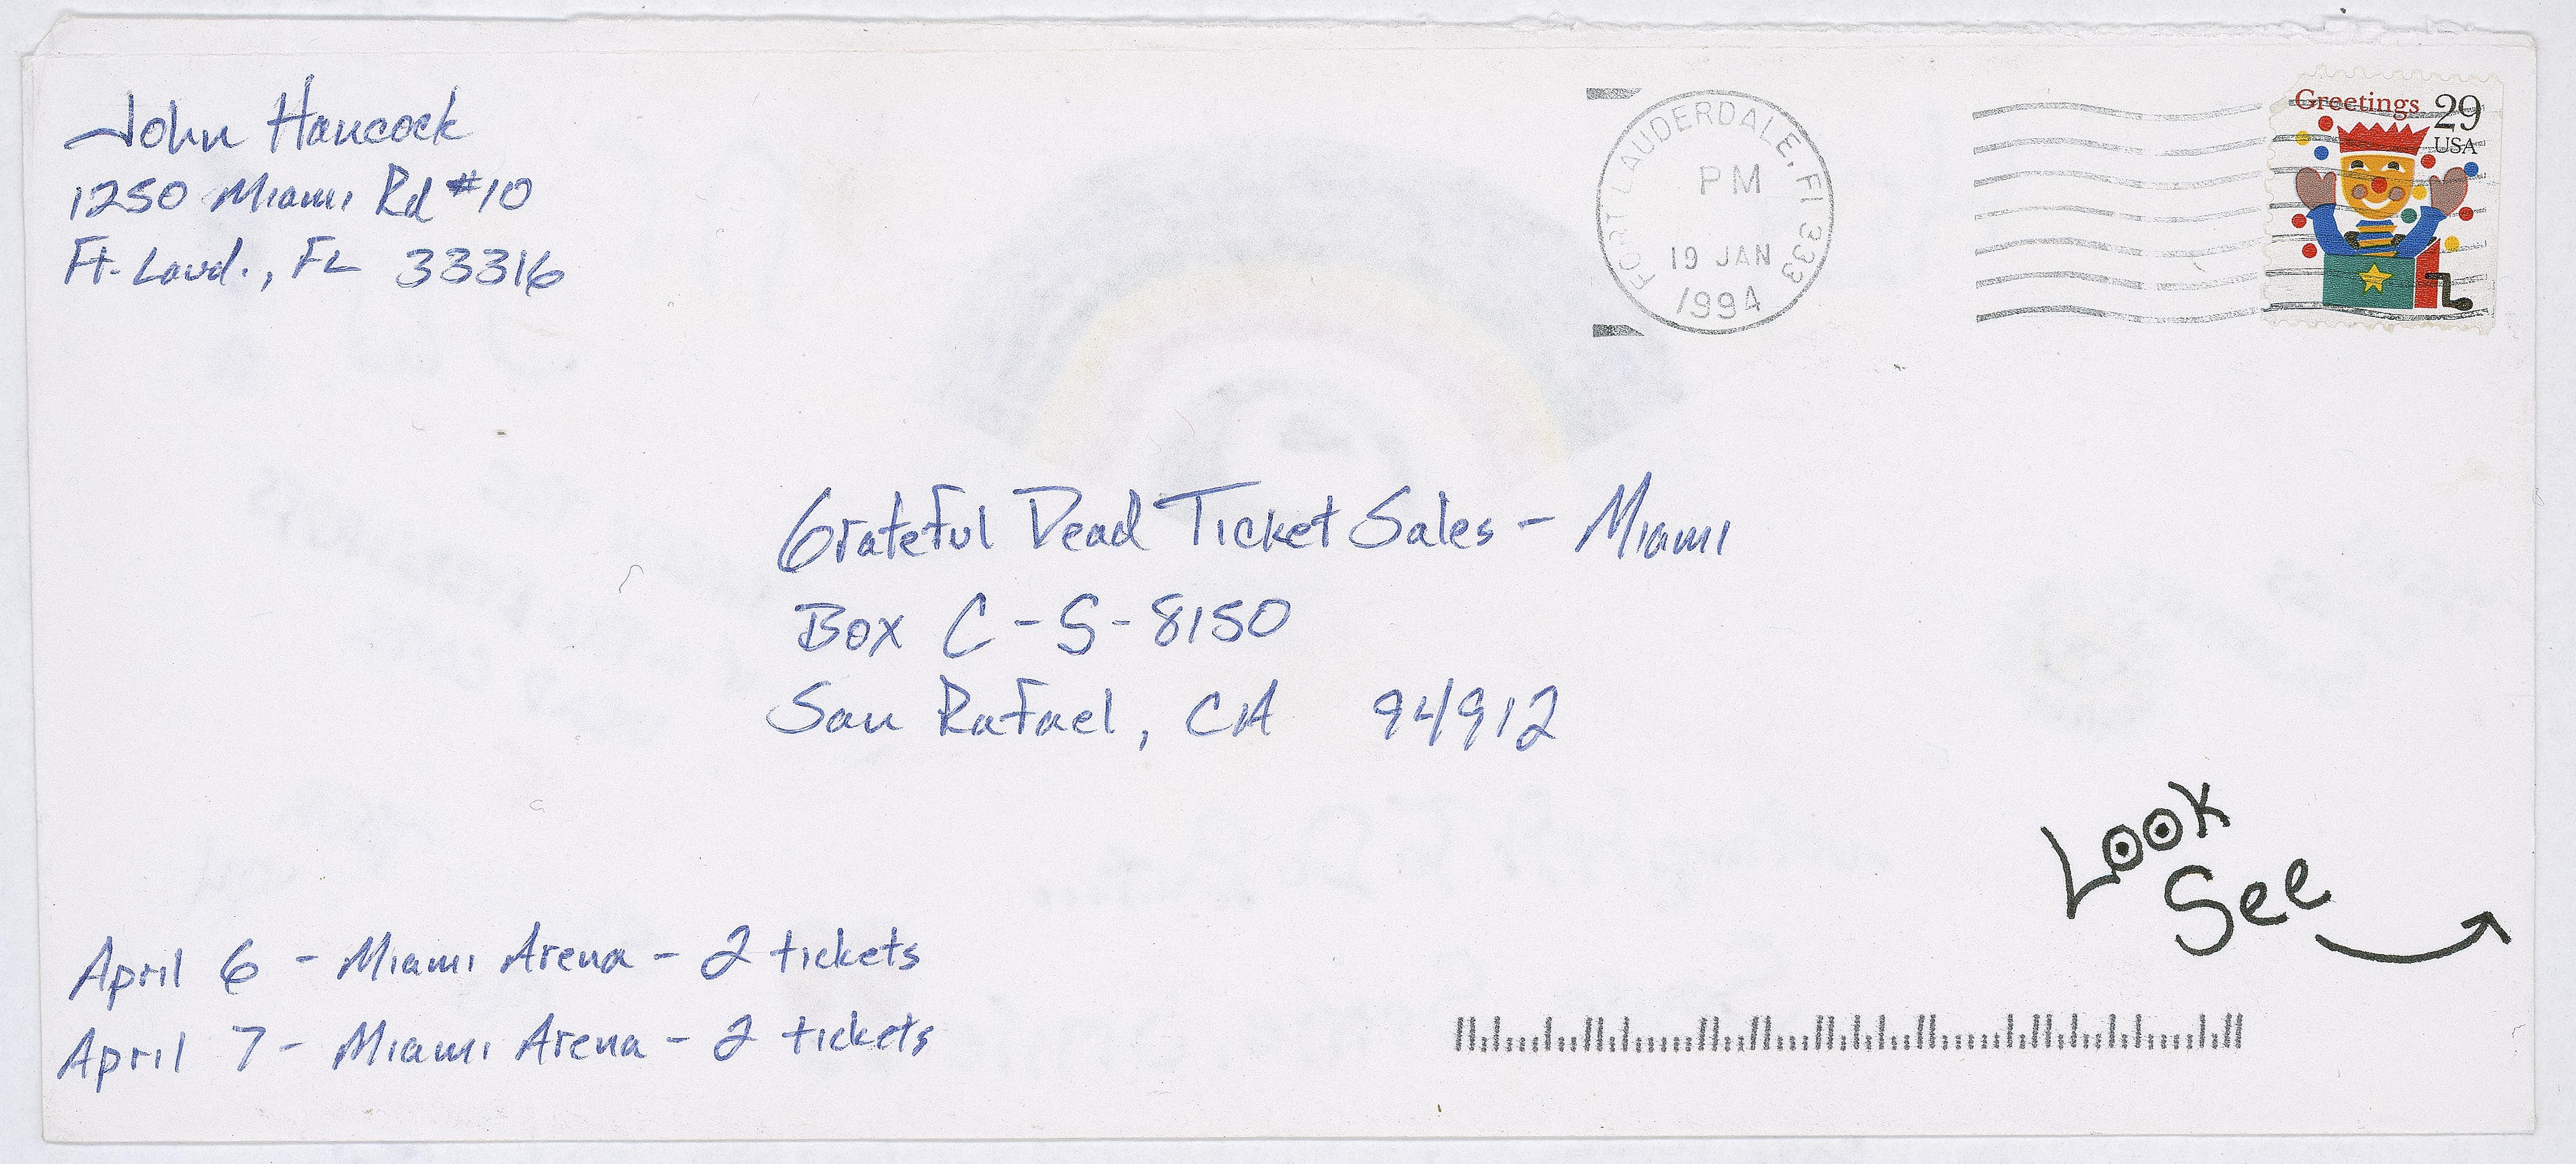 John Hancock
1250 Miami Rd #10
Ft. Laud., FL 33316
FORT LAUDERDALE, FL 333
PM
19 JAN
1994
Greetings 29
USA
Grateful Dead Ticket Sales - Miami
Box C-S-8150
San Rafael, CA 94912
Look
See
April 6 - Miami Arena - 2 tickets
April 7 - Miami Arena - 2 tickets